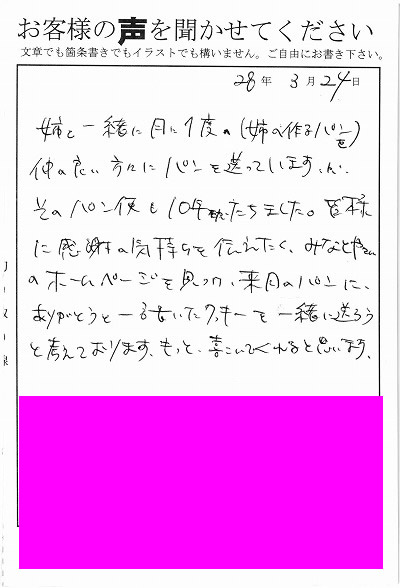 お客様の声を聞かせてください
文章でも箇条書きでもイラストでも構いません。ご自由にお書き下さい。
28年 3月24日
姉と一緒に月に1度の(姉の作るパンを)
仲の良い方々にパンを送っていますが、
そのパン便も10年たちました。皆様
に感謝の気持ちを伝えたく、みなとやさん
のホームページを見つけ、来月のパンに、
ありがとうと一言書いたクッキーを一緒に送ろう
と考えております。もっと、喜こんでくれると思います。
キリトリ線